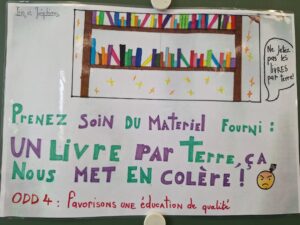 Ne jetez
pas les
LIVRES
par terre!
PRENEZ SOIN DU MATERIEL FOURNI :
UN LIVRE PAR TERRE, ÇA
NOUS MET EN COLÈRE !
ODD 4 : Favorisons une éducation de qualité